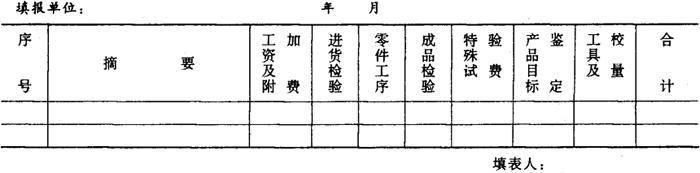 填报单位： 年 月
序号
摘要
工资及附加费
进货检验
零件工序
成品检验
特殊试验费
产品目标鉴定
工具及校量
合计
填表人：